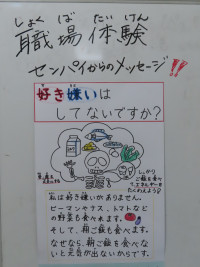 しょく ば たい けん
職場体験
センパイからのメッセージ!!
好き嫌いは
してないですか?
しっかり
ご飯を食べ
て
私は好き嫌いがありません。
ピーマンやナス、トマトなど
の野菜も食べれます。
そして、朝ご飯も食べます。
なぜなら、朝ご飯を食べない
と元気が出ないからです。